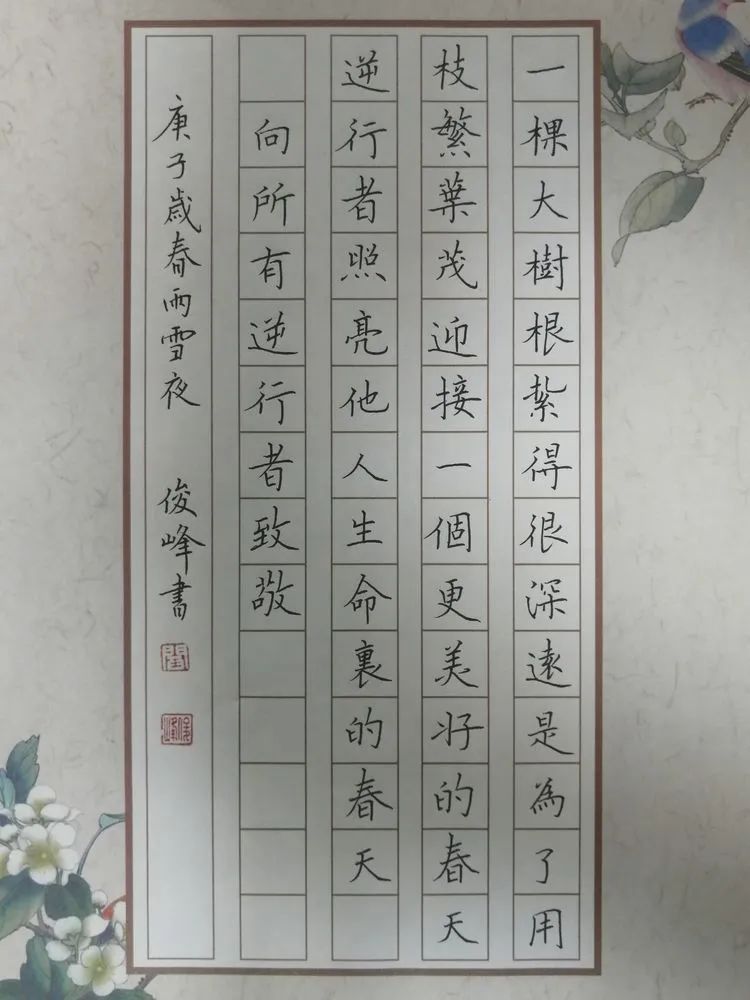 一棵大樹根紮得很深遠是為了用
枝繁葉茂迎接一個更美好的春天
逆行者照亮他人生命裏的春天
向所有逆行者致敬
庚子歲春雨雪夜 俊峰書